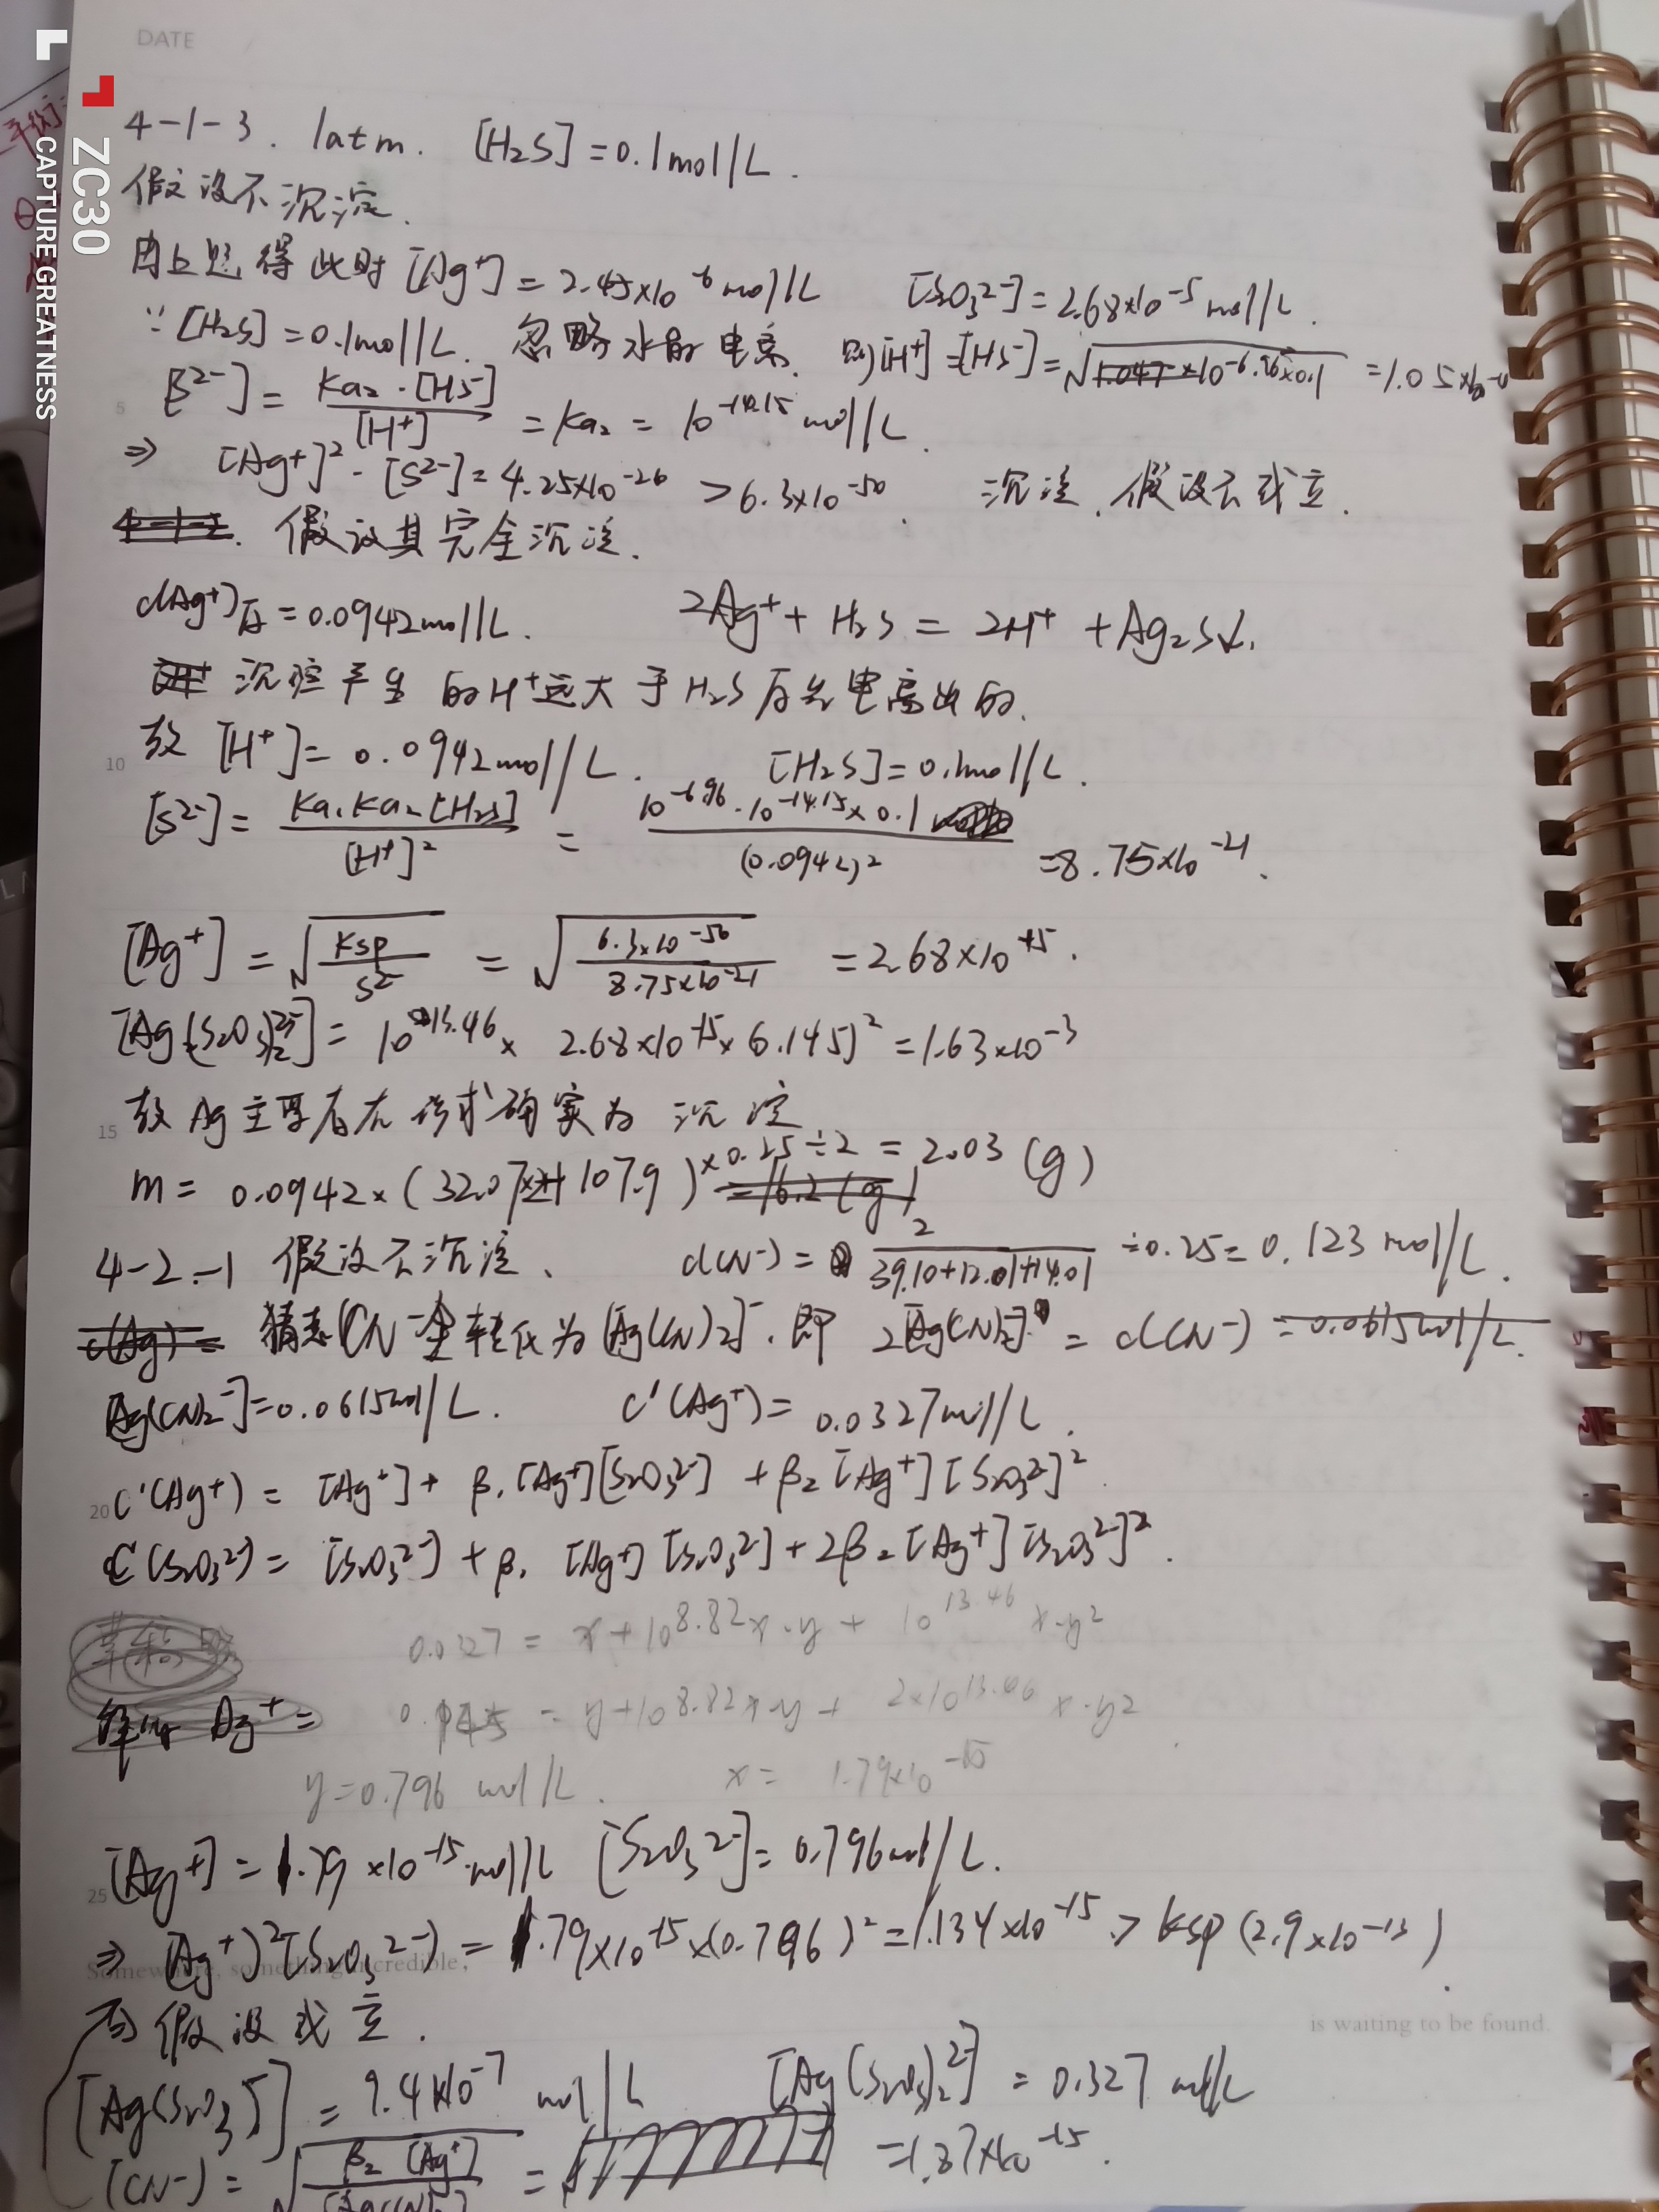 DATE
ZC30
CAPTURE GREATNESS
4-1-3. 1atm. [H₂S]=0.1mol/L.
假设不沉淀.
由上题得此时[Ag⁺]=2.45×10⁻⁶mol/L [S₂O₃²⁻]=2.68×10⁻⁵mol/L.
∵[H₂S]=0.1mol/L. 忽略水的电离. 则[H⁺]=[HS⁻]=√10⁻⁶·⁹⁶×0.1 =1.05×10
5 [S²⁻]=Ka₂·[HS⁻]/[H⁺] =Ka₂=10⁻¹⁴·¹⁵mol/L.
⇒ [Ag⁺]²·[S²⁻]=4.25×10⁻²⁶ >6.3×10⁻⁵⁰. 沉淀,假设不成立.
假设其完全沉淀.
c(Ag⁺)=0.0942mol/L. 2Ag⁺+H₂S=2H⁺+Ag₂S↓.
沉淀产生的H⁺远大于H₂S 电离出的.
10 故[H⁺]=0.0942mol/L. [H₂S]=0.1mol/L.
[S²⁻]=Ka₁Ka₂[H₂S]/[H⁺]² =10⁻⁶·⁹⁶·10⁻¹⁴·¹⁵×0.1/(0.0942)² =8.75×10⁻²¹.
[Ag⁺]=√Ksp/S²⁻ =√6.3×10⁻⁵⁰/8.75×10⁻²¹ =2.68×10⁻¹⁵.
[Ag(S₂O₃)₂]=10¹³·⁴⁶×2.68×10⁻¹⁵×0.145)²=1.63×10⁻³
15 故Ag主要存在形式确实为沉淀
m=0.0942×(32.07+2×107.9)×0.25÷2=2.03(g) =16.2(g)
4-2-1 假设不沉淀. c(CN⁻)=2/39.10+12.01+14.01 ÷0.25=0.123mol/L.
c(Ag)= 猜想CN⁻全转化为[Ag(CN)₂]⁻.即2[Ag(CN)₂⁻]=c(CN⁻)=0.0615mol/L.
[Ag(CN)₂⁻]=0.0615mol/L. c'(Ag⁺)=0.0327mol/L.
20 c'(Ag⁺)=[Ag⁺]+β₁[Ag⁺][S₂O₃²⁻]+β₂[Ag⁺][S₂O₃²⁻]²
c(S₂O₃²⁻)=[S₂O₃²⁻]+β₁[Ag⁺][S₂O₃²⁻]+2β₂[Ag⁺][S₂O₃²⁻]².
0.0327=x+10⁸·⁸²x·y+10¹³·⁴⁶x·y²
Ag⁺= =y+10⁸·⁸²x·y+2×10¹³·⁴⁶x·y²
y=0.796mol/L. x=1.79×10⁻¹⁵
25 [Ag⁺]=1.79×10⁻¹⁵mol/L [S₂O₃²⁻]=0.796mol/L.
⇒[Ag⁺]²[S₂O₃²⁻]=1.79×10⁻¹⁵×(0.796)²=1.134×10⁻¹⁵>Ksp(2.9×10⁻¹³)
Somewhere, something incredible,
假设成立.
is waiting to be found.
[Ag(S₂O₃)⁻]=9.4×10⁻⁷mol/L [Ag(S₂O₃)₂]=0.327mol/L
[CN⁻]=√β₂[Ag⁺]/[Ag(CN)₂⁻] = =1.37×10⁻¹⁵.